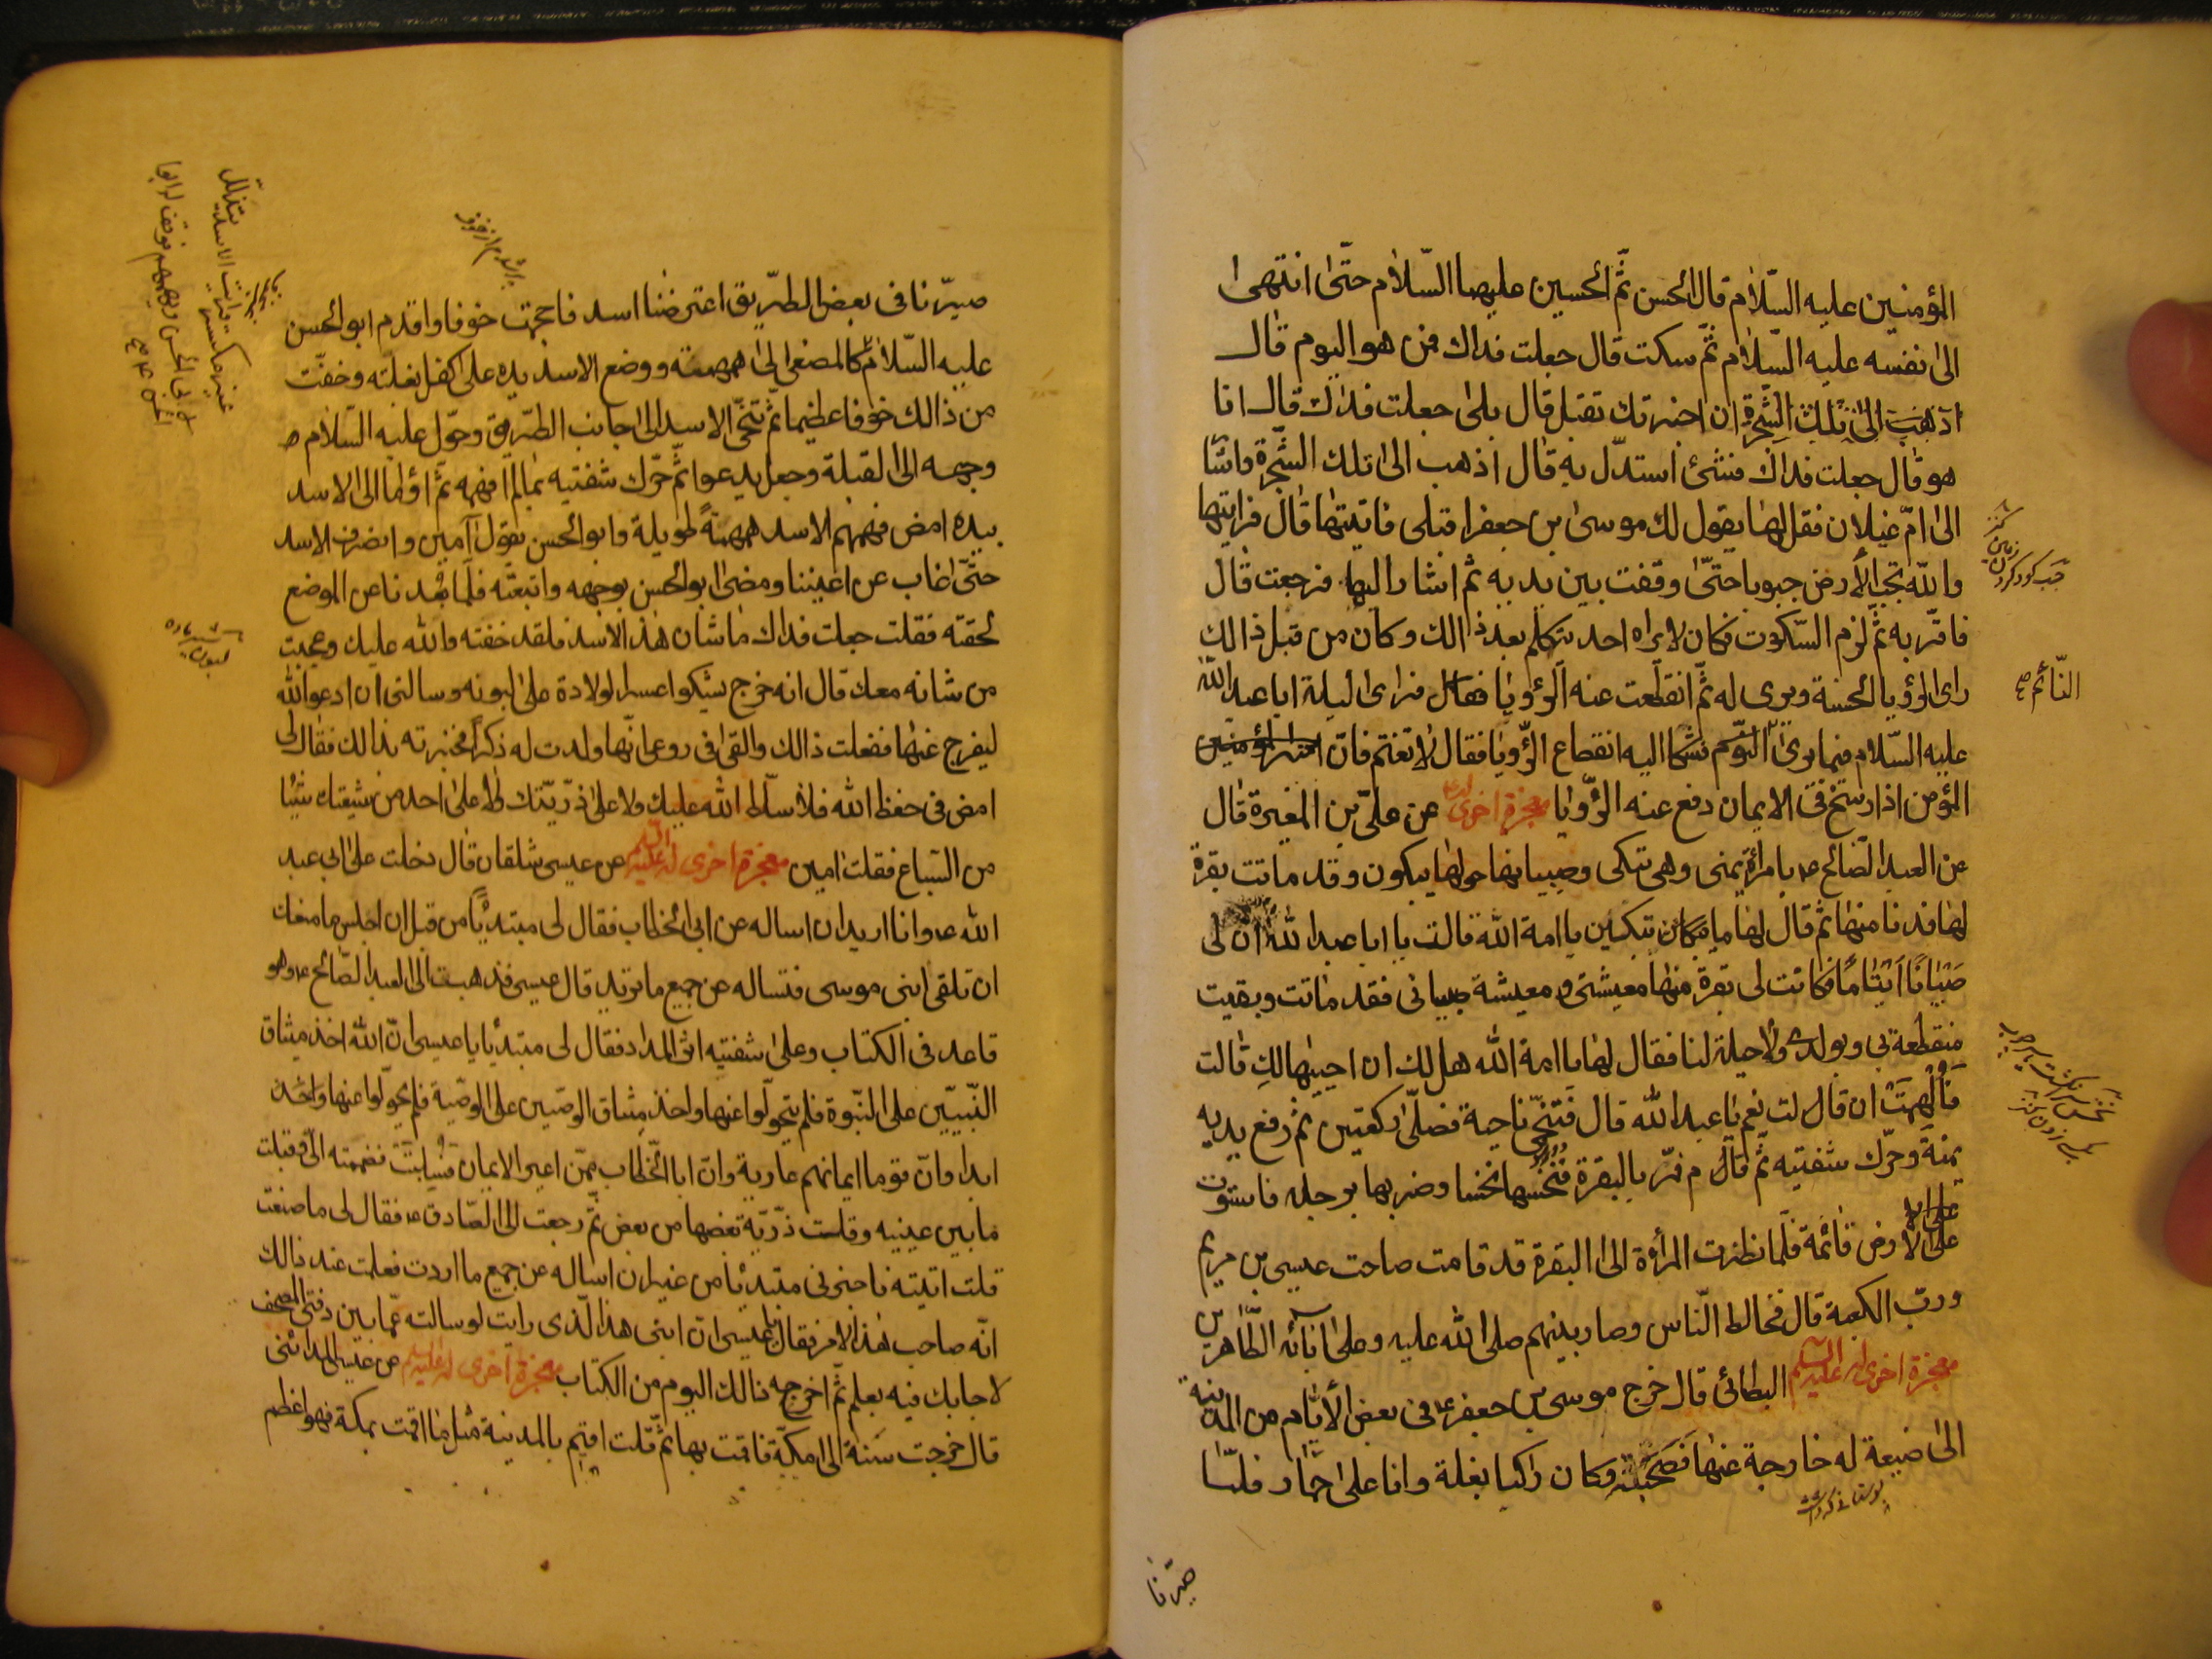 المؤمنين عليه السّلام قال الحسن ثمّ الحسين عليهما السّلام حتّى انتهى
الى نفسه عليه السّلام ثمّ سكت قال جعلت فداك فمن هو اليوم قال
ان اخبرتك تقبل قال بلى جعلت فداك قال انا
هو قال جعلت فداك فشئ استدلّ به قال اذهب الى تلك الشّجرة واشار
الى امّ غيلان فقل لها يقول لك موسى بن جعفر اقبلى فاتيتها قال فرايتها
والله تجبّ الأرض جبوبا حتّى وقفت بين يديه ثم اشار اليها فرجعت قال
فاقرّ به ثمّ لزم السّكوت فكان لا يراه احد يتكلم بعد ذالك وكان من قبل ذالك
راى الرؤيا الحسنة ويرى له ثمّ انقطعت عنه الرّؤيا فراى ليلة ابا عبد الله
عليه السّلام فيما يرى النّوم فشكا اليه انقطاع الرّؤيا فقال لا تغتم فانّ
المؤمن اذا رسخ فى الايمان رفع عنه الرّؤيا معجزة اخرى عن علىّ بن المغيرة قال
عن العبد الصّالح ع بامرأة بمنى وهى تبكى وصبيانها حولها يبكون وقد ماتت بقرة
لها فدنا منها ثم قال لها ما تبكين يا امة الله قالت يا ابا عبد الله ان لى
صبيانا ايتاما فكانت لى بقرة منها معيشتى و معيشة صبيانى فقد ماتت وبقيت
منقطعة بى وبولدى ولا حيلة لنا فقال لها يا امة الله هل لك ان احييها لكِ قالت
فألهمت ان قالت نعم يا عبد الله قال فتنحّى ناحية فصلّى ركعتين ثم رفع يديه
يمنة وحرّك شفتيه ثمّ قام فمرّ بالبقرة فنخسها نخسا وضربها برجله فاستوت
على الارض قائمة فلمّا نظرت المرأة الى البقرة قد قامت صاحت عيسى بن مريم
وربّ الكعبة قال فخالط النّاس وصار بينهم صلى الله عليه وعلى آبآئه الطّاهرين
معجزة اخرى له عليه السلم البطائنى قال خرج موسى بن جعفر ع فى بعض الأيّام من المدينة
الى ضيعة له خارجة عنها فصحبته وكان راكبا بغلة وانا على حمار فلمّا
صرنا
النّائم صح
صرنا فى بعض الطّريق اعترضنا اسد فاحجمت خوفا واقدم ابو الحسن
عليه السّلام كالمصغى الى همهمته ووضع الاسد يده على كفل بغلته وخفت
من ذالك خوفا عظيما ثمّ تنحّى الاسد الى جانب الطّريق وحوّل عليه السّلام
وجهه الى القبلة وجعل يدعوا ثمّ حرّك شفتيه بما لم افهمه ثمّ اؤما الى الاسد
بيده امض فهمهم الاسد همهمةً طويلة وابو الحسن يقول آمين وانصرف الاسد
حتّى غاب عن اعيننا ومضى ابو الحسن بوجهه واتبعته فلمّا بعدنا عن الموضع
لحقته فقلت جعلت فداك ما شان هذا الاسد فلقد خفته والله عليك وعجبت
من شانه معك قال انه خرج يشكوا عسر الولادة على لبوته وسالنى ان ادعو الله
ليفرج عنها ففعلت ذالك والقى فى روعى انّها ولدت له ذكرا فخبرته بذالك فقال لى
امض فى حفظ الله فلا سلّط الله عليك ولا على ذرّيّتك ولا على احد من شيعتك شيئا
من السّباع فقلت امين معجزة اخرى له عليه السلم عن عيسى شلقان قال دخلت على ابى عبد
الله ع وانا اريد ان اساله عن ابى الخطاب فقال لى مبتدئًا من قبل ان اجلس ما منعك
ان تلقى ابنى موسى فتساله عن جميع ما تريد قال عيسى فذهبت الى العبد الصّالح ع وهو
قاعد فى الكتاب وعلى شفتيه اثر المداد فقال لى مبتدئا يا عيسى انّ الله اخذ ميثاق
النّبيّين على النّبوة فلم يتحوّلوا عنها واخذ ميثاق الوصيّين على الوصيّة فلم يحوّلوا عنها
ابدا وانّ قوما ايمانهم عارية وانّ ابا الخّطاب ممّن اعير الايمان فضممته الىّ وقبلت
ما بين عينيه وقلت ذرّيّة بعضها من بعض ثمّ رجعت الى الصّادق ع فقال لى ما صنعت
قلت اتيته فاخبرنى مبتدئا من غير ان اساله عن جميع ما اردت فعلمت عند ذالك
انّه صاحب هذا الامر فقال يا عيسى انّ ابنى هذا الّذى رايت لو سالته عمّا بين دفتى المصحف
لاجابك فيه بعلم ثمّ اخرجه ذالك اليوم من الكتاب معجزة اخرى له عليه السلم عن عيسى المدائنى
قال خرجت سنة الى مكّة فاقمت بها ثمّ قلت اقيم بالمدينة مثل ما اقمت بمكة فهو اعظم